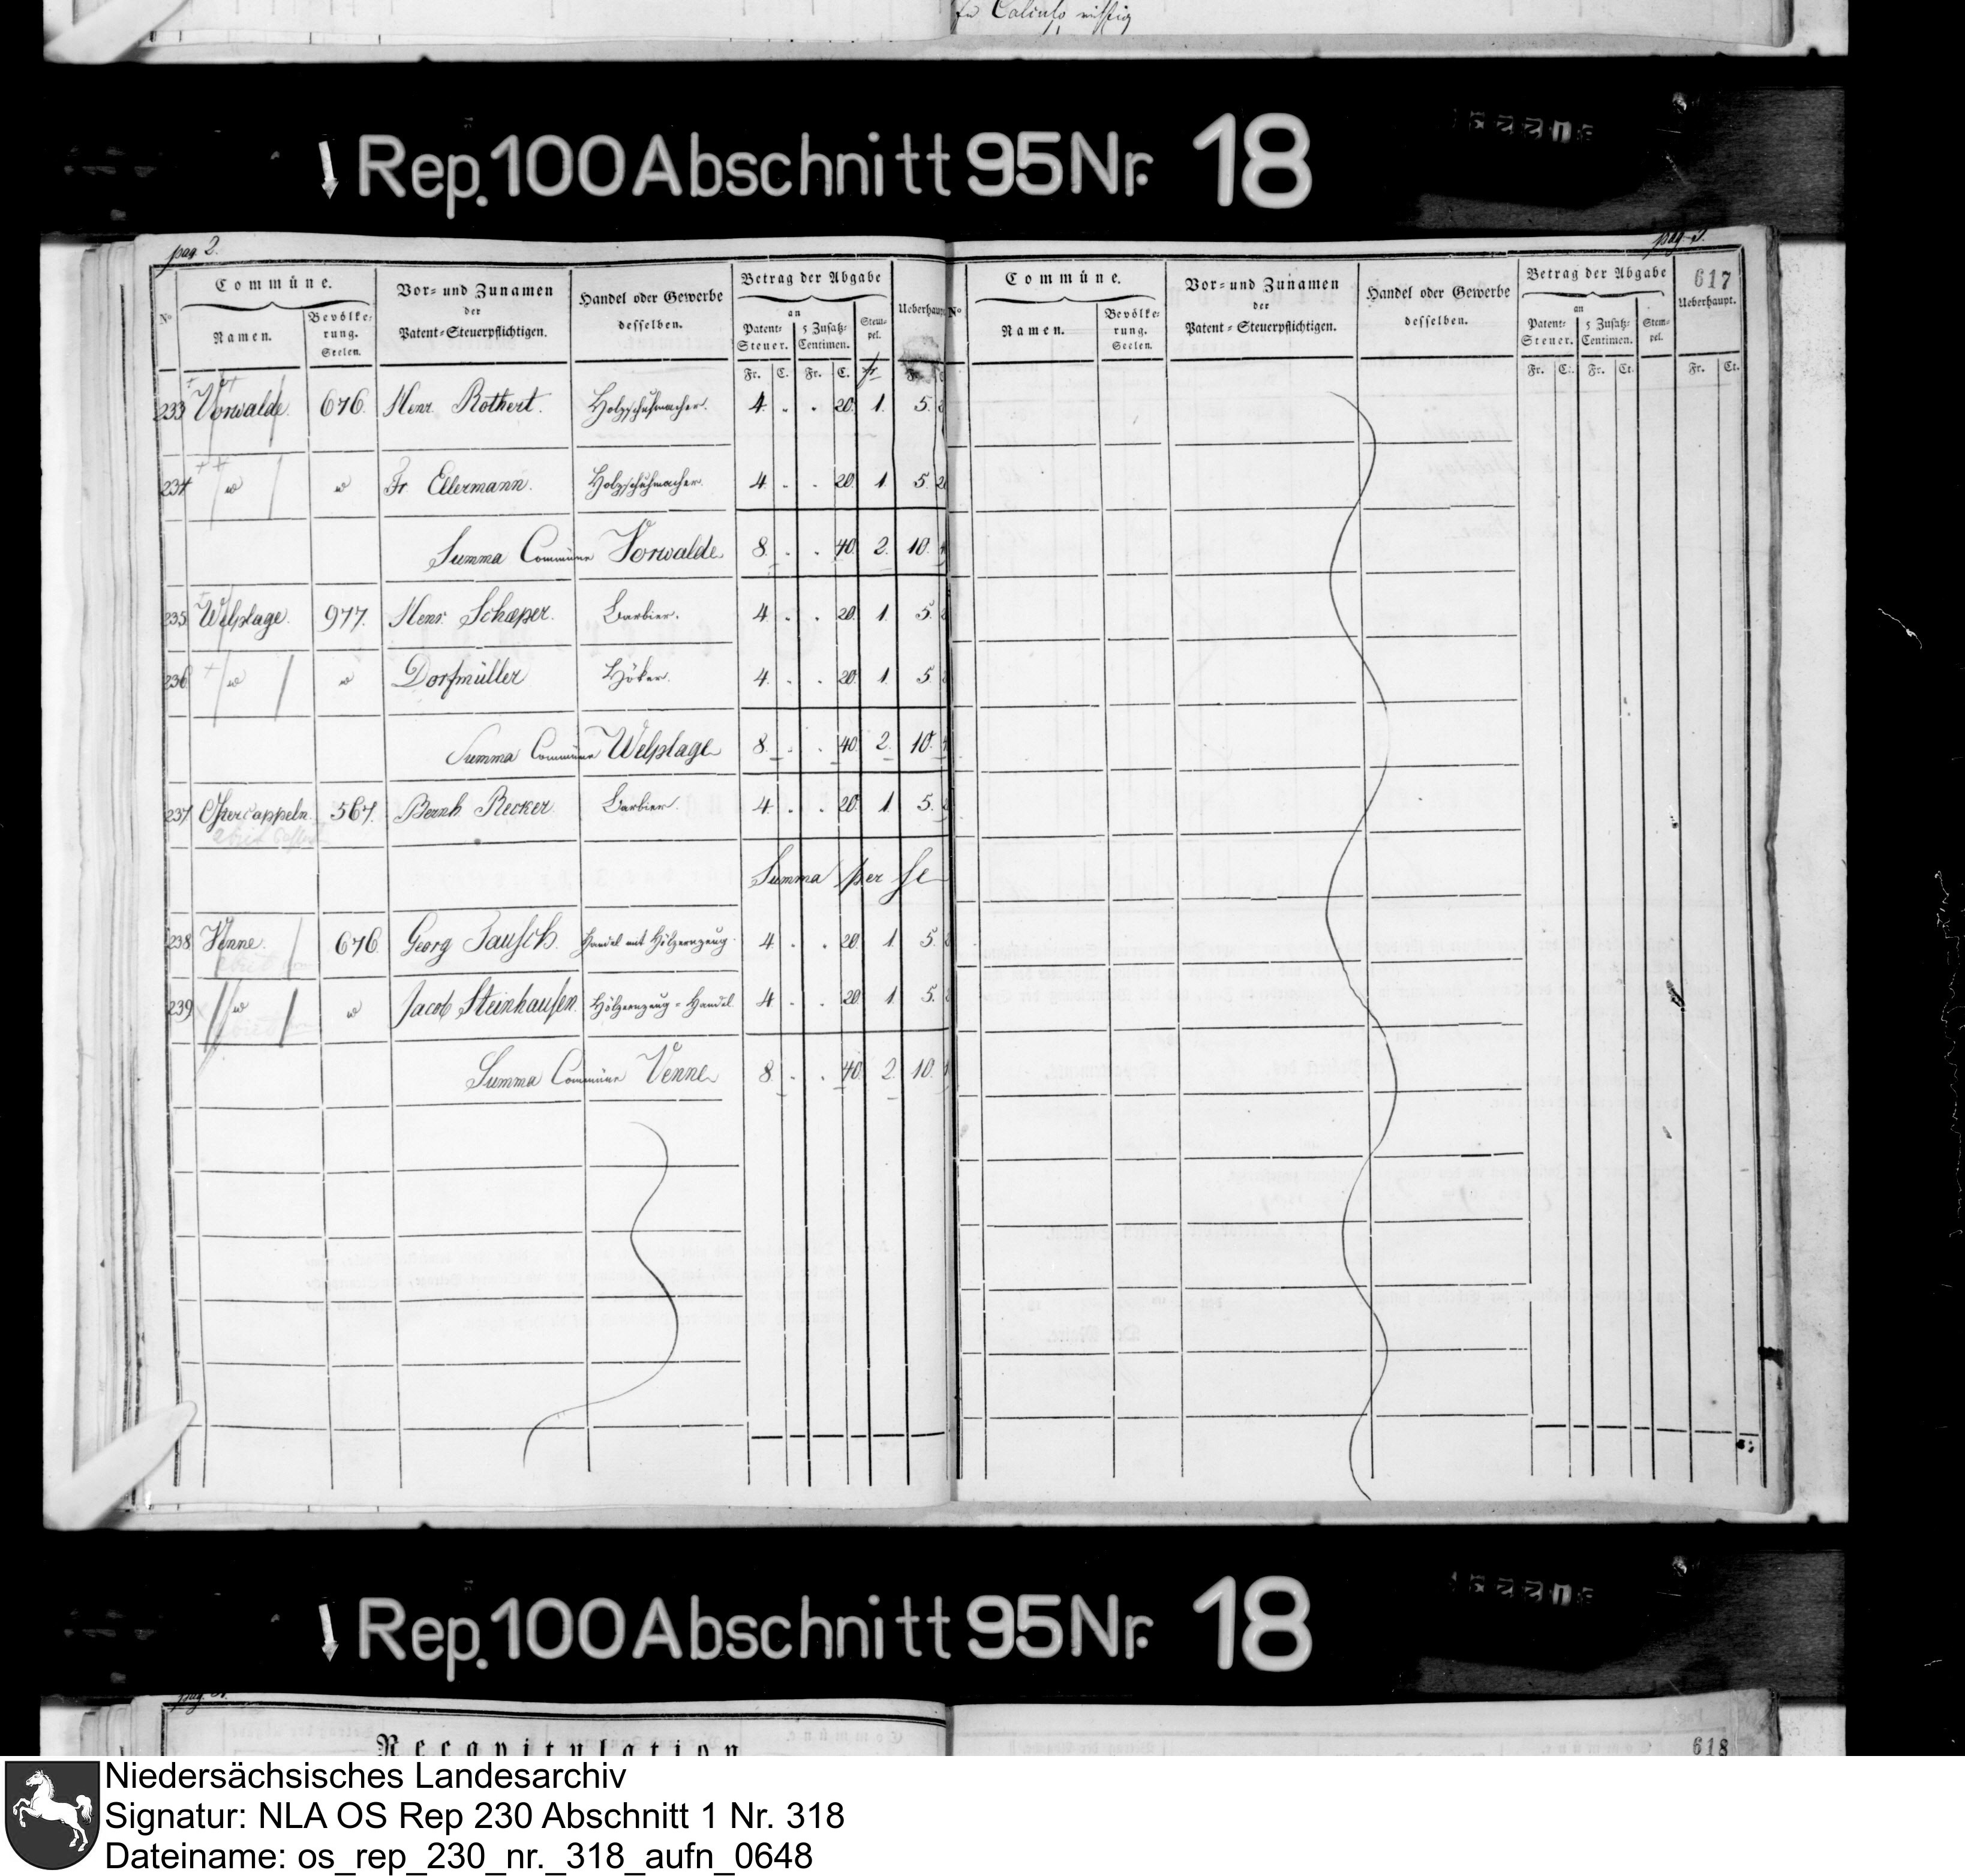 fu Calculo richtig
Rep. 100 Abschnitt 95 Nr. 18
pag. 2.
Commüne.
Vor- und Zunamen der Patent-Steuerpflichtigen.
Handel oder Gewerbe desselben.
Betrag der Abgabe an
Ueberhaupt
No
Namen.
Bevölkerung. Seelen.
Patent-Steuer.
5 Zusatz-Centimen.
Stempel.
Fr. C. Fr. C. fr.
233 Vorwalde. 676. Henr. Rothert. Holzschuhmacher. 4. - . 20. 1. 5.
234 " " Fr. Ellermann. Holzschuhmacher. 4. - . 20. 1. 5. 20
Summa Commüne Vorwalde 8. - . 40. 2. 10.
235 Welplage. 977. Henr. Schæper. Barbier. 4. - . 20. 1. 5.
236 " " Dorfmüller Höker. 4. - . 20. 1. 5.
Summa Commüne Welplage 8. - . 40. 2. 10.
237 Ostercappeln. 567. Bernh. Becker Barbier. 4. - . 20. 1. 5.
Summa per se
238 Venne. 676. Georg Pausch. Handel mit Hölzernzeug. 4. - . 20. 1. 5.
239 " " Jacob Steinhausen. Hölzernzeug-Handel. 4. - . 20. 1. 5.
Summa Commüne Venne 8. - . 40. 2. 10.
pag. 3.
617
Commüne.
Vor- und Zunamen der Patent-Steuerpflichtigen.
Handel oder Gewerbe desselben.
Betrag der Abgabe an
Ueberhaupt.
No
Namen.
Bevölkerung. Seelen.
Patent-Steuer.
5 Zusatz-Centimen.
Stempel.
Fr. C. Fr. Ct. Fr. Ct.
Rep. 100 Abschnitt 95 Nr. 18
Recapitulation
618
Niedersächsisches Landesarchiv
Signatur: NLA OS Rep 230 Abschnitt 1 Nr. 318
Dateiname: os_rep_230_nr._318_aufn_0648